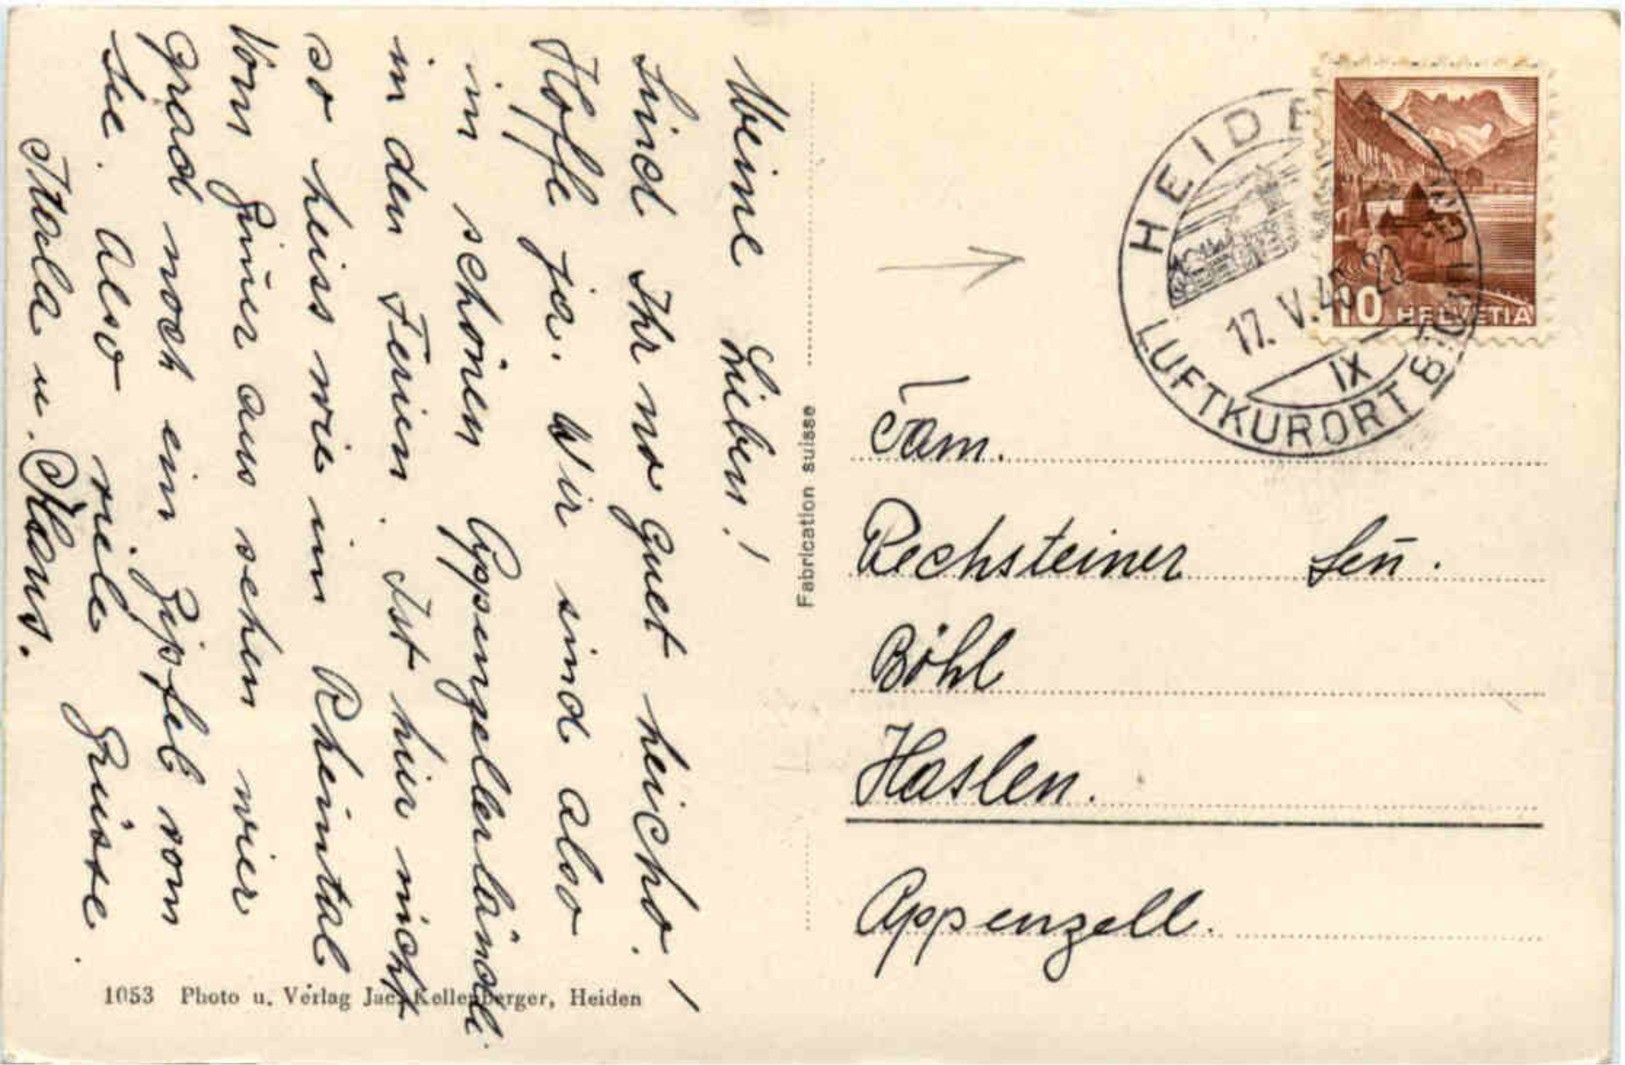 Meine Lieben!
Sind Ihr no guet heicho!
Hoffe ja. Wir sind also
in schönen Appenzellerländli
in den Ferien. Ist hier nicht
so heiss wie im Rheintal.
Vom Zimer aus sehen wir
grad noch ein Zipfel vom
See. Also viele Grüsse.
u. Hans.
1053 Photo u. Verlag Jac. Kellenberger, Heiden
Fabrication suisse
HEIDEN
17. V. 4
IX
LUFTKURORT
10 HELVETIA
Fam.
Rechsteiner Sen.
Böhl
Haslen.
Appenzell.